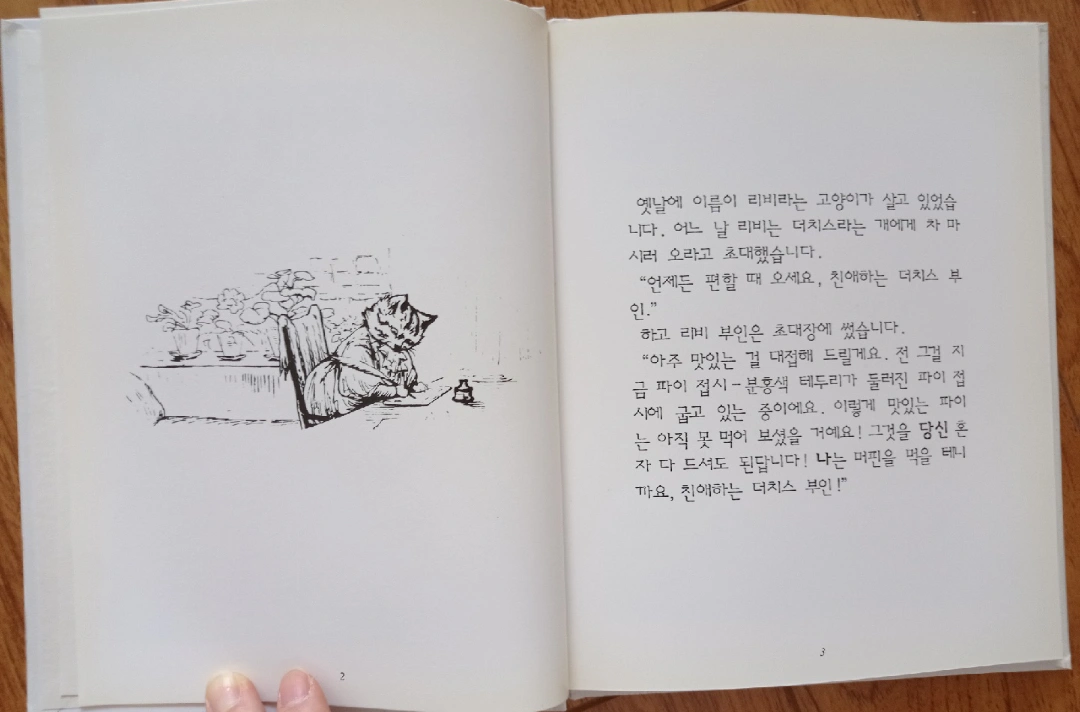 옛날에 이름이 리비라는 고양이가 살고 있었습
니다. 어느 날 리비는 더치스라는 개에게 차 마
시러 오라고 초대했습니다.
“언제든 편할 때 오세요, 친애하는 더치스 부
인.”
하고 리비 부인은 초대장에 썼습니다.
“아주 맛있는 걸 대접해 드릴게요. 전 그걸 지
금 파이 접시-분홍색 테두리가 둘러진 파이 접
시에 굽고 있는 중이에요. 이렇게 맛있는 파이
는 아직 못 먹어 보셨을 거예요! 그것을 당신 혼
자 다 드셔도 된답니다! 나는 머핀을 먹을 테니
까요, 친애하는 더치스 부인!”
2
3